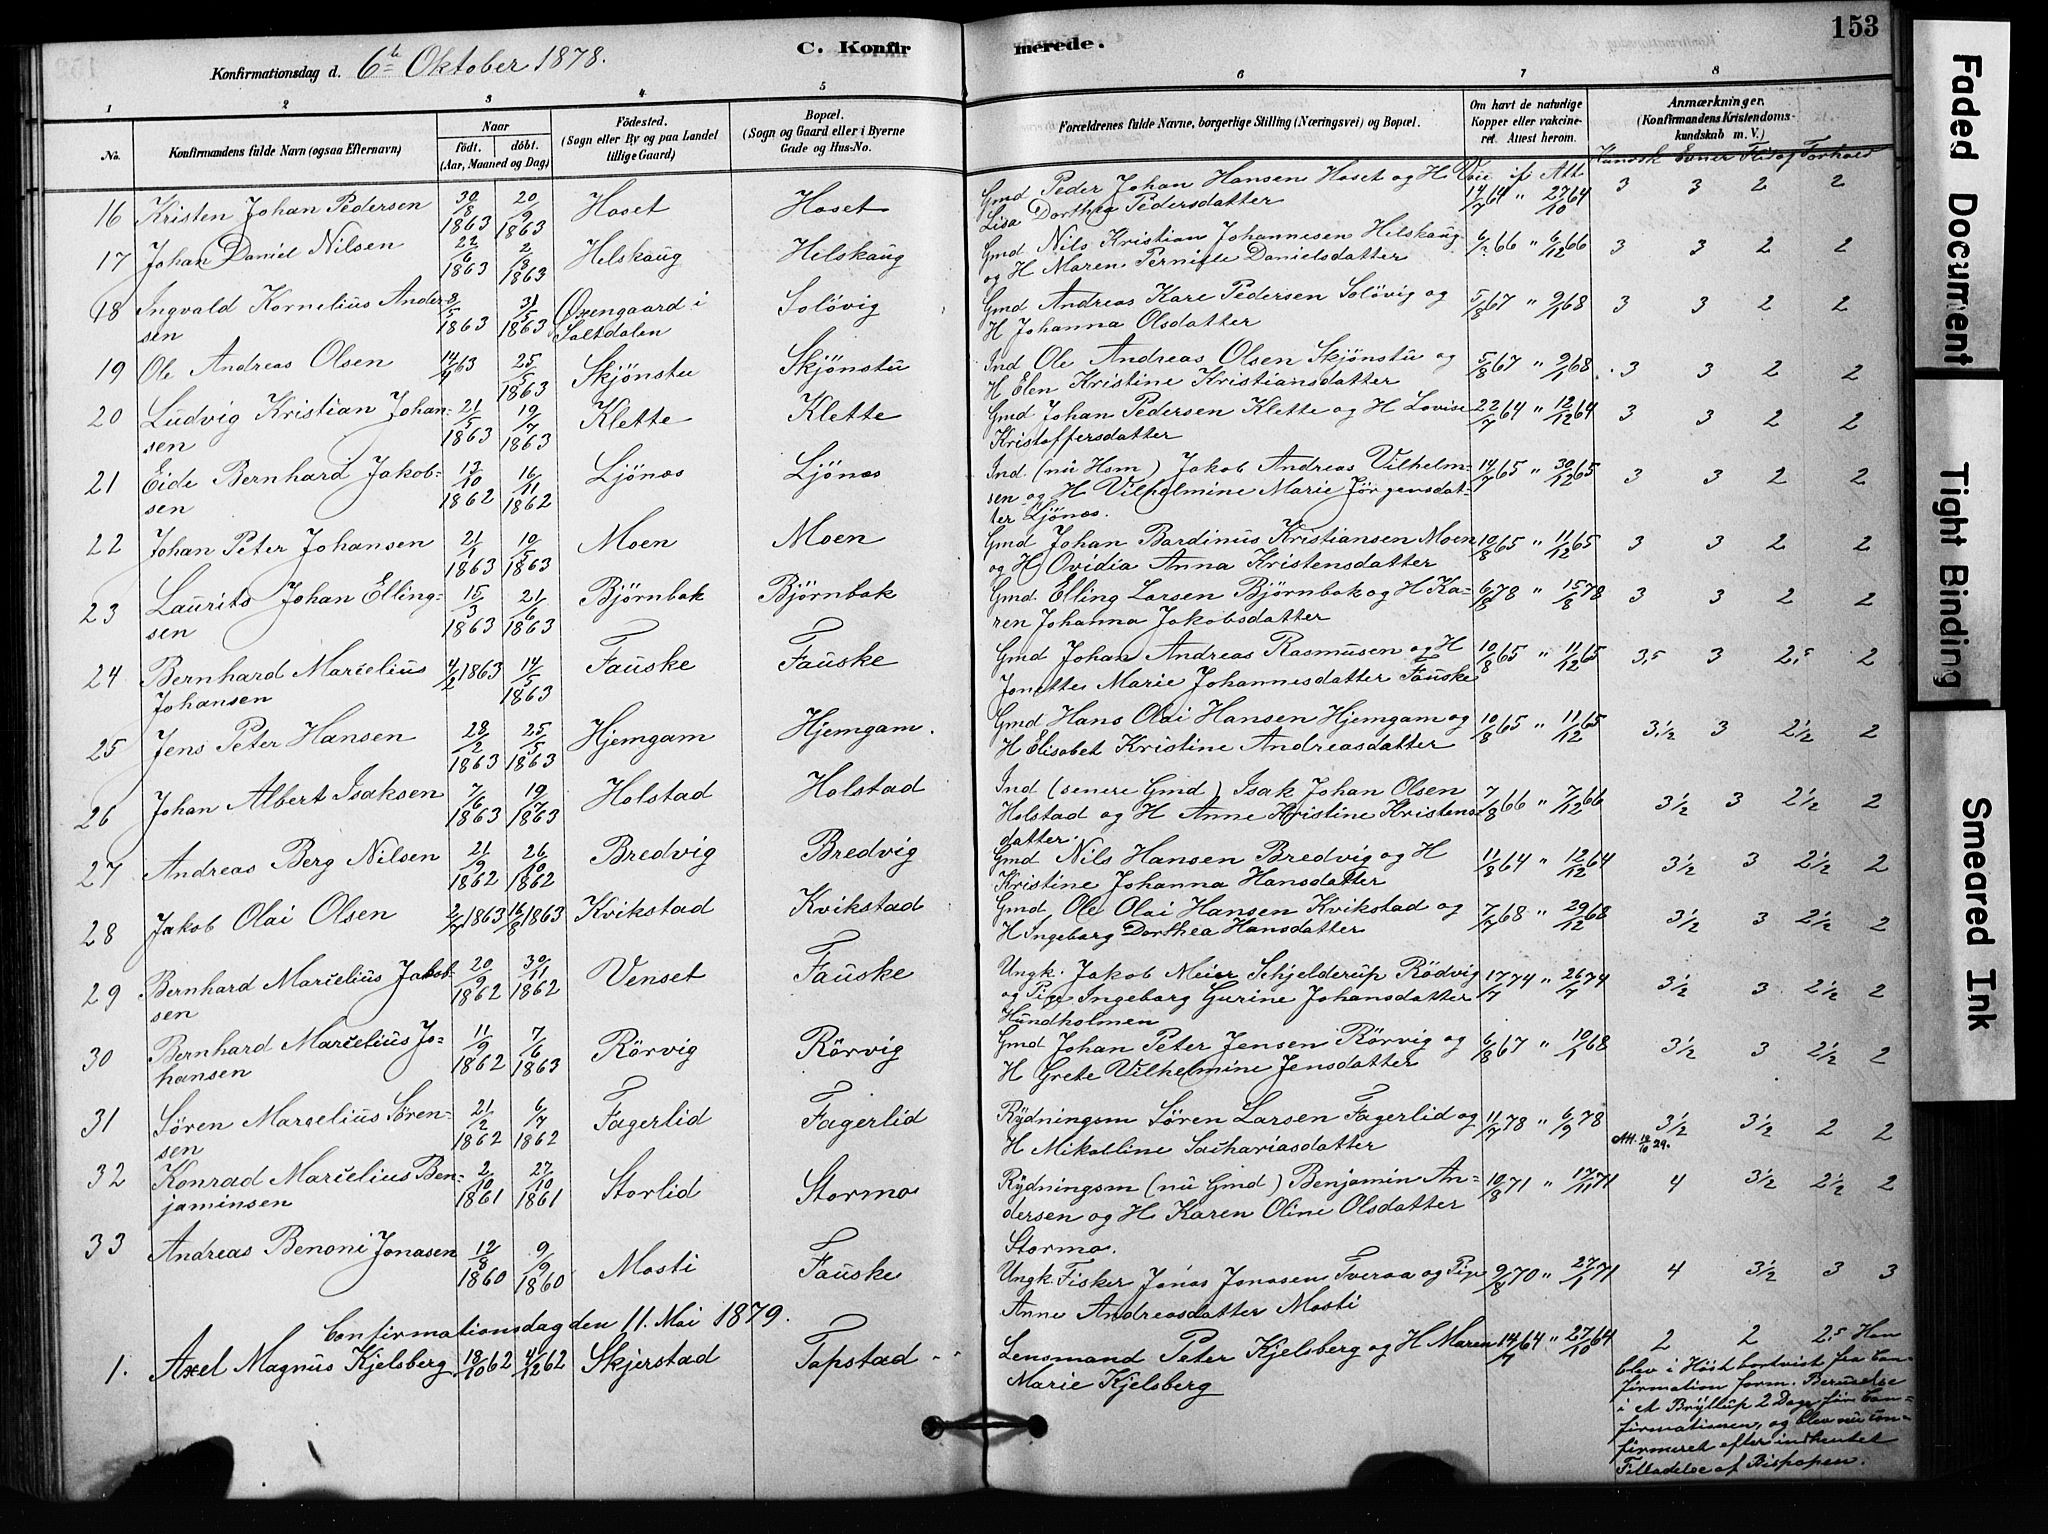 153
Konfirmationsdag d. 6te Oktober 1878. C. Konfirmerede.
1 2 3 4 5 6 7 8
No. Konfirmandens fulde Navn (ogsaa Efternavn) Naar født. døbt. (Aar, Maaned og Dag) Fødested. (Sogn eller By og paa Landet tillige Gaard) Bopæl. (Sogn og Gaard eller i Byerne Gade og Hus-No. Forældrenes fulde Navne, borgerlige Stilling (Næringsvei) og Bopæl. Om havt de naturlige Kopper eller vaccineret. Attest herom. Anmærkninger. (Konfirmandens Kristendomskundskab m. V.)
Kundsk Evner Flid og Forhold
16 Kristen Johan Pedersen 30/8 1863 20/9 1863 Hoset Hoset Gmd Peder Johan Hansen Hoset og H
Lisa Dorthea Pedersdatter 14/7 64 " 27/10 64 3 3 2 2
17 Johan Daniel Nilsen 22/6 1863 2/8 1863 Helskaug Helskaug Gmd. Nils Kristian Johannesen Helskaug
og H Maren Pernille Danielsdatter 66 " 6/12 66 3 3 2 2
18 Ingvald Kornelius Ander-
sen 3/5 1863 31/5 1863 Oxengaard i
Saltdalen Soløvig Gmd Andreas Kare Pedersen Soløvig og
H Johanna Olsdatter 5/8 67 " 9/1 68 3 3 2 2
19 Ole Andreas Olsen 14/4 63 25/5 1863 Skjønstu Skjønstu Ind Ole Andreas Olsen Skjønstu og
H Elen Kristine Kristiansdatter 5/8 67 " 9/1 68 3 3 2 2
20 Ludvig Kristian Johan-
sen 21/5 1863 19/7 1863 Klette Klette Gmd Johan Pedersen Klette og H Lovise
Kristoffersdatter 22/7 64 " 12/12 64 3 3 2 2
21 Eide Bernhard Jakob-
sen 13/10 1862 16/11 1862 Ljønes Ljønes Ind (nu Hsm) Jakob Andreas Vilhelm-
sen og H Vilhelmine Marie Jørgensdat-
ter Ljønes. 14/7 65 " 30/12 65 3 3 2 2
22 Johan Peter Johansen 21/1 1863 10/5 1863 Moen Moen Gmd Johan Bardinus Kristiansen Moen
og H Ovidia Anna Kristensdatter 10/8 65 " 11/12 65 3 3 2 2
23 Laurits Johan Elling-
sen 15/3 1863 21/6 1863 Bjørnbak Bjørnbak Gmd. Elling Larsen Bjørnbak og H Ka-
ren Johanna Jakobsdatter 6/8 78 " 15/8 78 3 3 2 2
24 Bernhard Marcelius
Johansen 4/2 1863 14/5 1863 Fauske Fauske Gmd Johan Andreas Rasmusen og H
Jonette Marie Johannesdatter Fauske 10/8 65 " 11/12 65 3,5 3 2,5 2
25 Jens Peter Hansen 28/2 1863 25/5 1863 Hjemgam Hjemgam. Gmd Hans Olai Hansen Hjemgam og
H Elisabet Kristine Andreasdatter 10/8 65 " 11/12 65 3 1/2 3 2 1/2 2
26 Johan Albert Isaksen 7/6 1863 19/7 1863 Holstad Holstad Ind (senere Gmd) Isak Johan Olsen
Holstad og H Anne Kristine Kristens-
datter. 7/8 66 " 7/12 66 3 1/2 3 2 1/2 2
27 Andreas Berg Nilsen 21/9 1862 26/10 1862 Bredvig Bredvig Gmd Nils Hansen Bredvig og H
Kristine Johanna Hansdatter 11/8 64 " 12/12 64 3 1/2 3 2 1/2 2
28 Jakob Olai Olsen 2/7 1863 16/8 1863 Kvikstad Kvikstad Gmd Ole Olai Hansen Kvikstad og
H Ingeborg Dorthea Hansdatter 7/7 68 " 29/12 68 3 1/2 3 2 1/2 2
29 Bernhard Marcelius Jakob-
sen 20/9 1862 30/11 1862 Venset Fauske Ungk. Jakob Meier Schjelderup Rødvig
og Pige Ingeborg Gurine Johansdatter
Hundholmen 17/7 74 " 26/7 74 3 1/2 3 2 1/2 2
30 Bernhard Marcelius Jo-
hansen 11/9 1862 7/6 1863 Rørvig Rørvig Gmd Johan Peter Jensen Rørvig og
H Grete Vilhelmine Jensdatter 6/8 67 " 10/1 68 3 1/2 3 2 1/2 2
31 Søren Marselius Søren-
sen 21/2 1862 6/7 1862 Fagerlid Fagerlid Rydningsm Søren Larsen Fagerlid og
H Mikalline Sachariasdatter 11/7 78 " 6/9 78 3 1/2 3 1/2 2 2
Att. 29.
32 Konrad Marcelius Ben-
jaminsen 2/10 1861 27/10 1861 Storlid Stormo Rydningsm (nu Gmd) Benjamin An-
dersen og H Karen Oline Olsdatter
Stormo. 10/8 71 " 17/11 71 4 3 1/2 2 1/2 2
33 Andreas Benoni Jonasen 12/8 1860 9/9 1860 Mosti Fauske Ungk Fisker Jonas Jonasen Tveraa og Pige
Anne Andreasdatter Mosti 9/8 70 " 27/1 71 4 3 1/2 3 3
Confirmationsdag den 11. Mai 1879.
1. Axel Magnus Kjelsberg 18/10 62 4/12 62 Skjerstad Tapstad Lensmand Peter Kjelsberg og H Maren
Marie Kjelsberg 14/7 64 " 27/10 64 2 2 2,5 Han
blev i Høst bortvist fra Con-
firmation form. Beruselse
i et Bryllup 2 Dage før Con-
firmationen, og blev nu con-
firmeret efter indhentet
Tilladelse af Bispopen.
Faded Document
Tight Binding
Smeared Ink